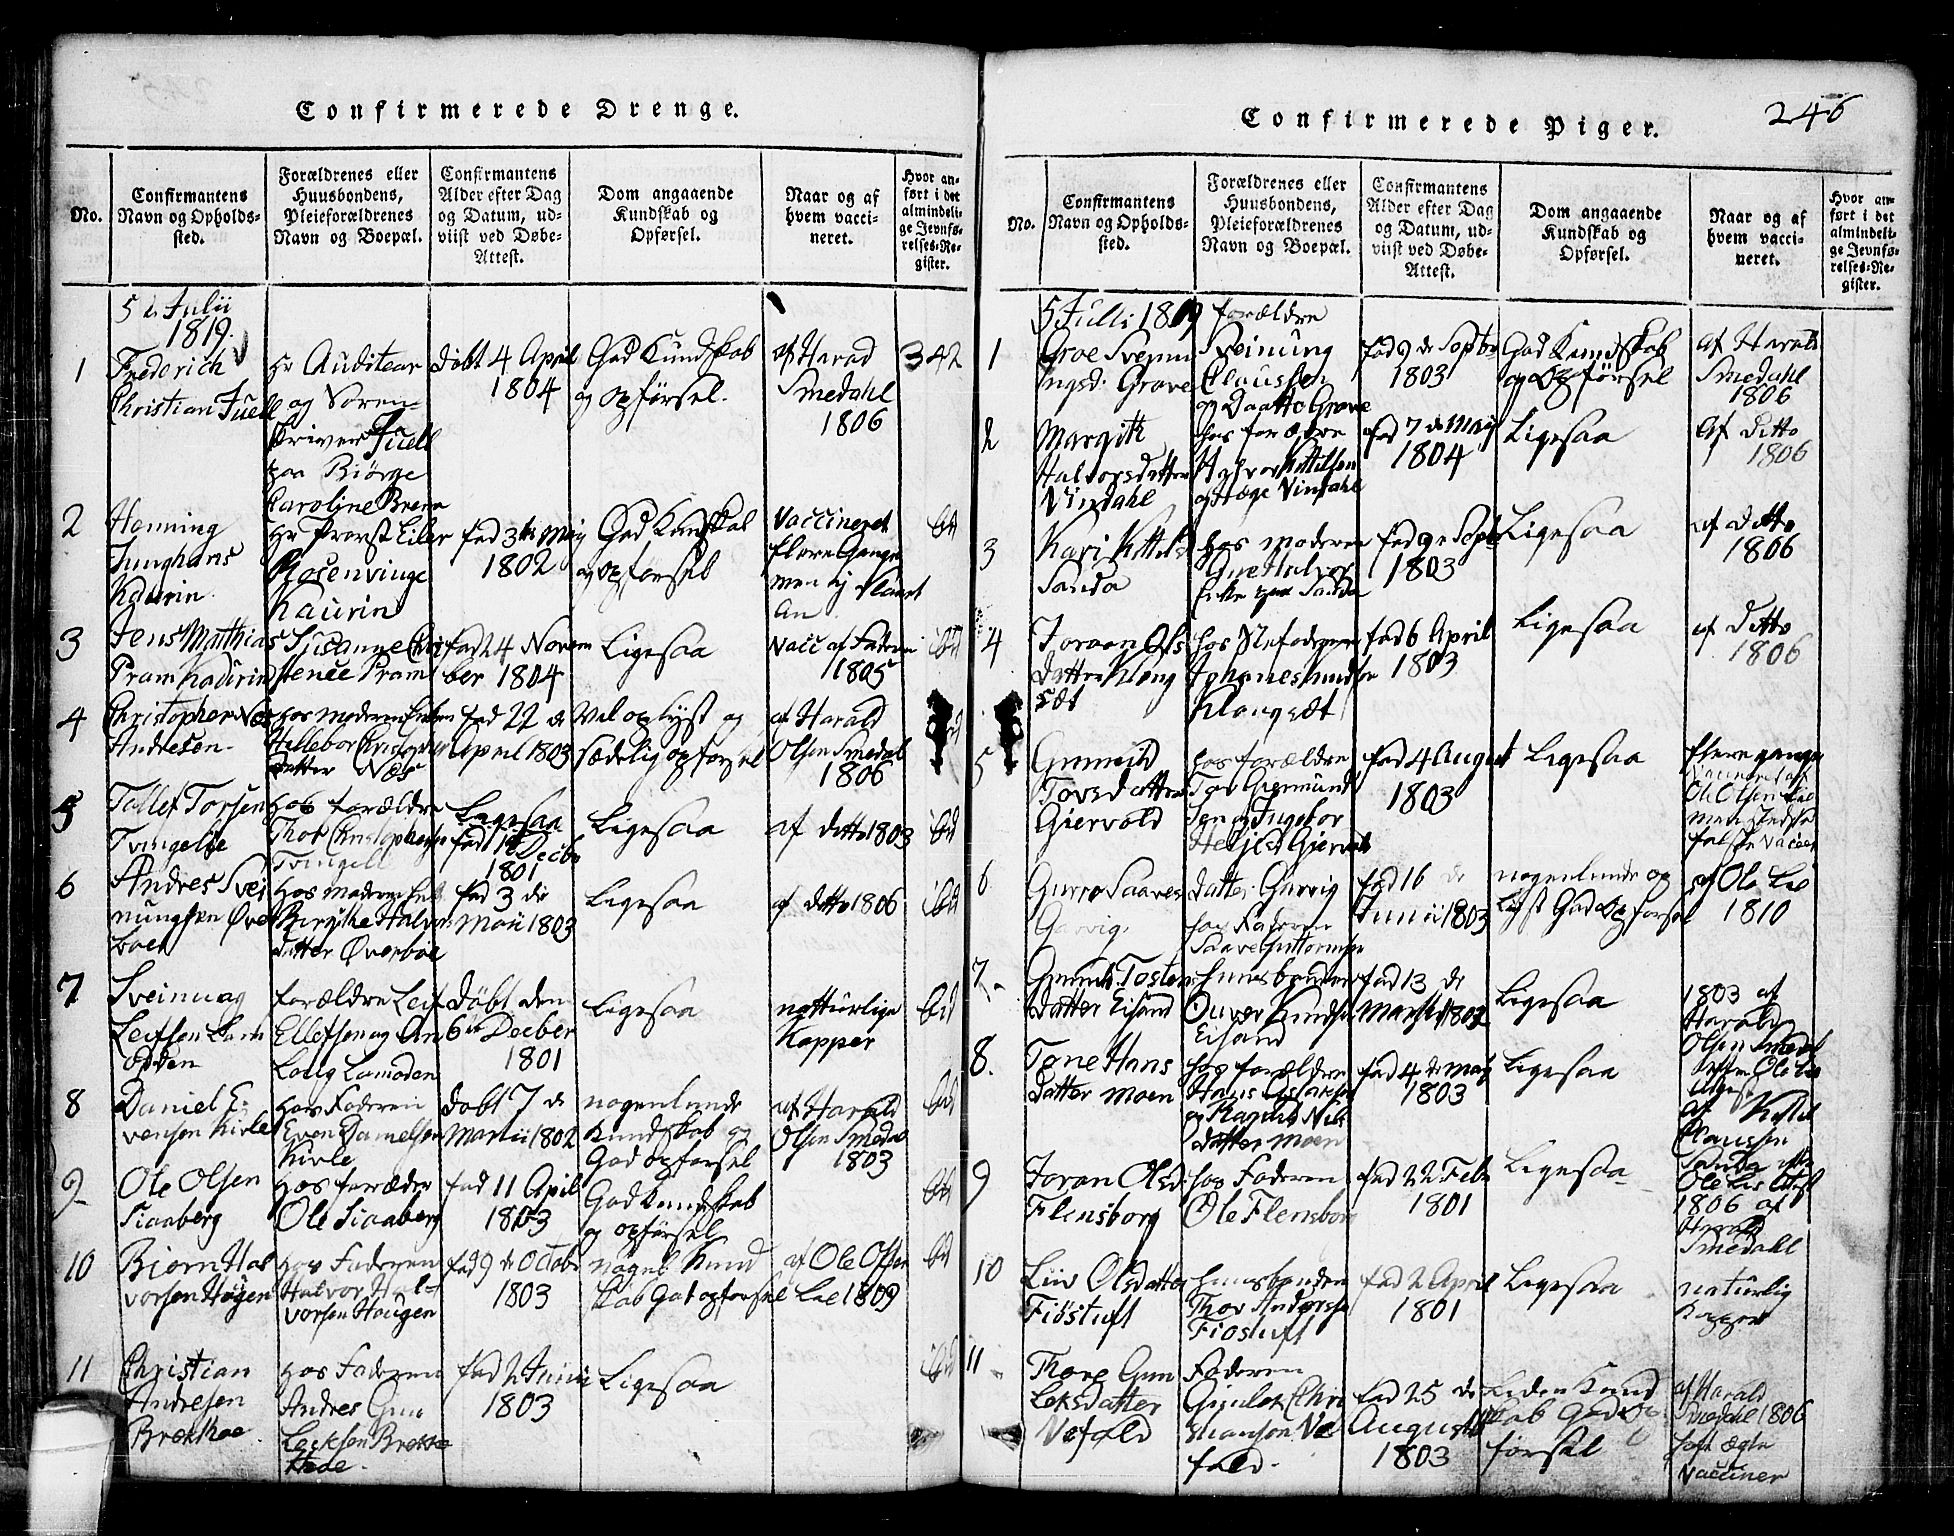 Confirmerede Drenge.
No.
Confirmantens
Navn og Opholds-
sted.
Forældrenes eller
Huusbondens,
Pleieforældrenes
Navn og Boepæl.
Confirmantens
Alder efter Dag
og Datum, ud-
viist ved Døbe-
Attest.
Dom angaaende
Kundskab og
Opførsel.
Naar og af
hvem vacci-
neret.
Hvor an-
ført i det
almindeli-
ge Jevnfø-
relses-Re-
gister.
5 d Julii
1819.
1
Frederich
Christian Juell
Hr Auditeur
og Soren-
skriver Juell
paa Biørge
Caroline
Døbt 4 April
1804
God Kundskab
og opførsel.
af Harad
Smedahl
1806
342
2
Henning
Junghans
Kaurin
Hr Provst Eiler
Rosenvinge
Kaurin
fød 3 Maij
1802
God Kundskab
og opførsel
Vaccineret
flere Gange
men ej slaaet
An
3
Jens Matthias
Pram Kaurin
fød 24 Novem
ber 1804
Ligesaa
Vacc af Faderen
1805
4
Christopher Næs
Andresen
hos moderen Enken
Hellebor Christopher
datter Næs
fød 22 de
April 1803
Vel oplyst og
sædelig opførsel
af Harald
Olsen Smedal
1806
5
Tollef Torsen
Tvingelie
hos forældre
Thor Christophersen
Tvingeli
Ligesaa
fød 1 Decbr
1801
Ligesaa
af ditto 1803
6
Andres Svei
nungsen Øver
boe
hos moderen
Birgithe Halvors
datter Øverbøe
fød 3 die
Maii 1803
Ligesaa
af ditto 1806
7
Sveinung
Leifsen Lam
odden
forældre Leif
Ellefsen og An
Laug Lamoden
Døbt den
6te Decber
1801
Ligesaa
nattürlige
Kopper
8
Daniel E-
vensen Kivle
hos Faderen
Even Danielsen
Kivle
Døbt 7 de
Martii 1802
nogenlunde
Kundskab og
God opførsel
af Harald
Olsen Smedal
1803
9
Ole Olsen
Siaaberg
hos forældre
Ole Siaaberg
fød 11 April
1803
God Kundskab
og opførsel
10
Biørn Hal
vorsen Høgen
hos Faderen
Halvor Hal-
vorsen Haugen
fød 9 de Octobr
1803
nogel Kund
skab God opførsel
af Ole Olsen
Lie 1809
11
Christian
Andresen
Brekkae
hos Faderen
Andres Gun
Leiksen Brekke
fød 2 Junii
1803
Ligesaa
Confirmerede Piger.
246
No.
Confirmantens
Navn og Opholds-
sted.
Forældrenes eller
Huusbondens,
Pleieforældrenes
Navn og Boepæl.
Confirmantens
Alder efter Dag
og Datum, ud-
viist ved Døbe-
Attest.
Dom angaaende
Kundskab og
Opførsel.
Naar og af
hvem vacci-
neret.
Hvor an-
ført i det
almindeli-
ge Jevnfø-
relses-Re-
gister.
5 Julli 1819
1
Groe Sveinu
ngsd. Grave
forældre
Sveinung
Clausen
og Daatto Grave
fød 9 de Septbr
1803
God Kundskab
og Opførsel
af Harald
Smedahl
1806
2
Margith
Halvorsdatter
Vindahl
hos forældre
Halvor Kittilsen
og Hæge Vindahl
fød 7 de Maij
1804
Ligesaa
Af Ditto
1806
3
Kari Kittels
Sanda
hos moderen
Enke paa Sanda
fød 9 Septbr
1803
Ligesaa
af ditto
1806
4
Joraan Ols
datter Klong
sæt
hos Plefaderen
Johanes Knudsen
Klongsæt
fød 6 April
1803
Ligesaa
af Ditto
1806
5
Gunnild
Tovsdatter
Giervold
hos forældre
Tov Giermund
sen og Ingebor
fød 4 August
1803
Ligesaa
flere gange
Ole Olsen Lie
6
Gurro Saaves
Garvig.
datter Garvig
hos Faderen
Saave Guttormsen
fød 16 de
Junii 1803
nogenlunde og
God Opførsel
af Ole Lie
1810
7
Gunild Tosten
datter Eisand
Huusbonden
Ouver Knudsen
Eisand
fød 13 de
Martii 1802
Ligesaa
1803 af
Harald
Olsen Smedal
8.
Tone Hans
datter Moen
hos forældre
Hans
og Ragnild Nils
datter Moen
fød 4 de Maij
1803
Ligesaa
af Kittil
Clausen
Sanda
9
Joran Olsd
Flensborg
hos Faderen
Ole Flensborg
fød 22 Febr
1801
Ligesaa
1806 af
Harald
Smedahl
10
Liiv Olsdatter
Fiøstuft
Huusbonden
Thov Andersen
Fiøstuft
fød 2 April
1801
Ligesaa
natürlig
Kopper
11
Thore Gun
Leksdatter
Vefald
Faderen
Gunlek Chri
stianson Ve
fald.
fød 25 de
Augustii
1803
Liden Kund
skab God Op
førsel
af Harald
Smedahl 1806
vacciner